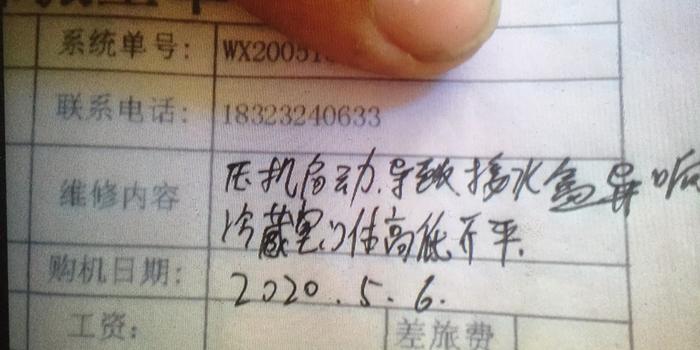 系统单号: WX20051
联系电话: 18323240633
维修内容 压机启动.导致接水盒异响
冷藏室门体高低不平.
购机日期: 2020.5.6.
工资: 差旅费